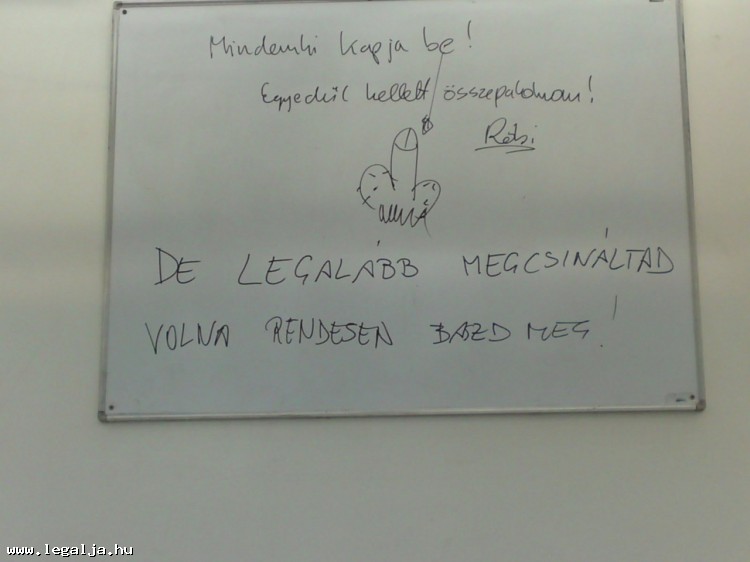 Mindenki kapja be!
Egyedül kellett összepakolnom!
DE LEGALÁBB MEGCSINÁLTAD
VOLNA RENDESEN BAZD MEG!
www.legalja.hu